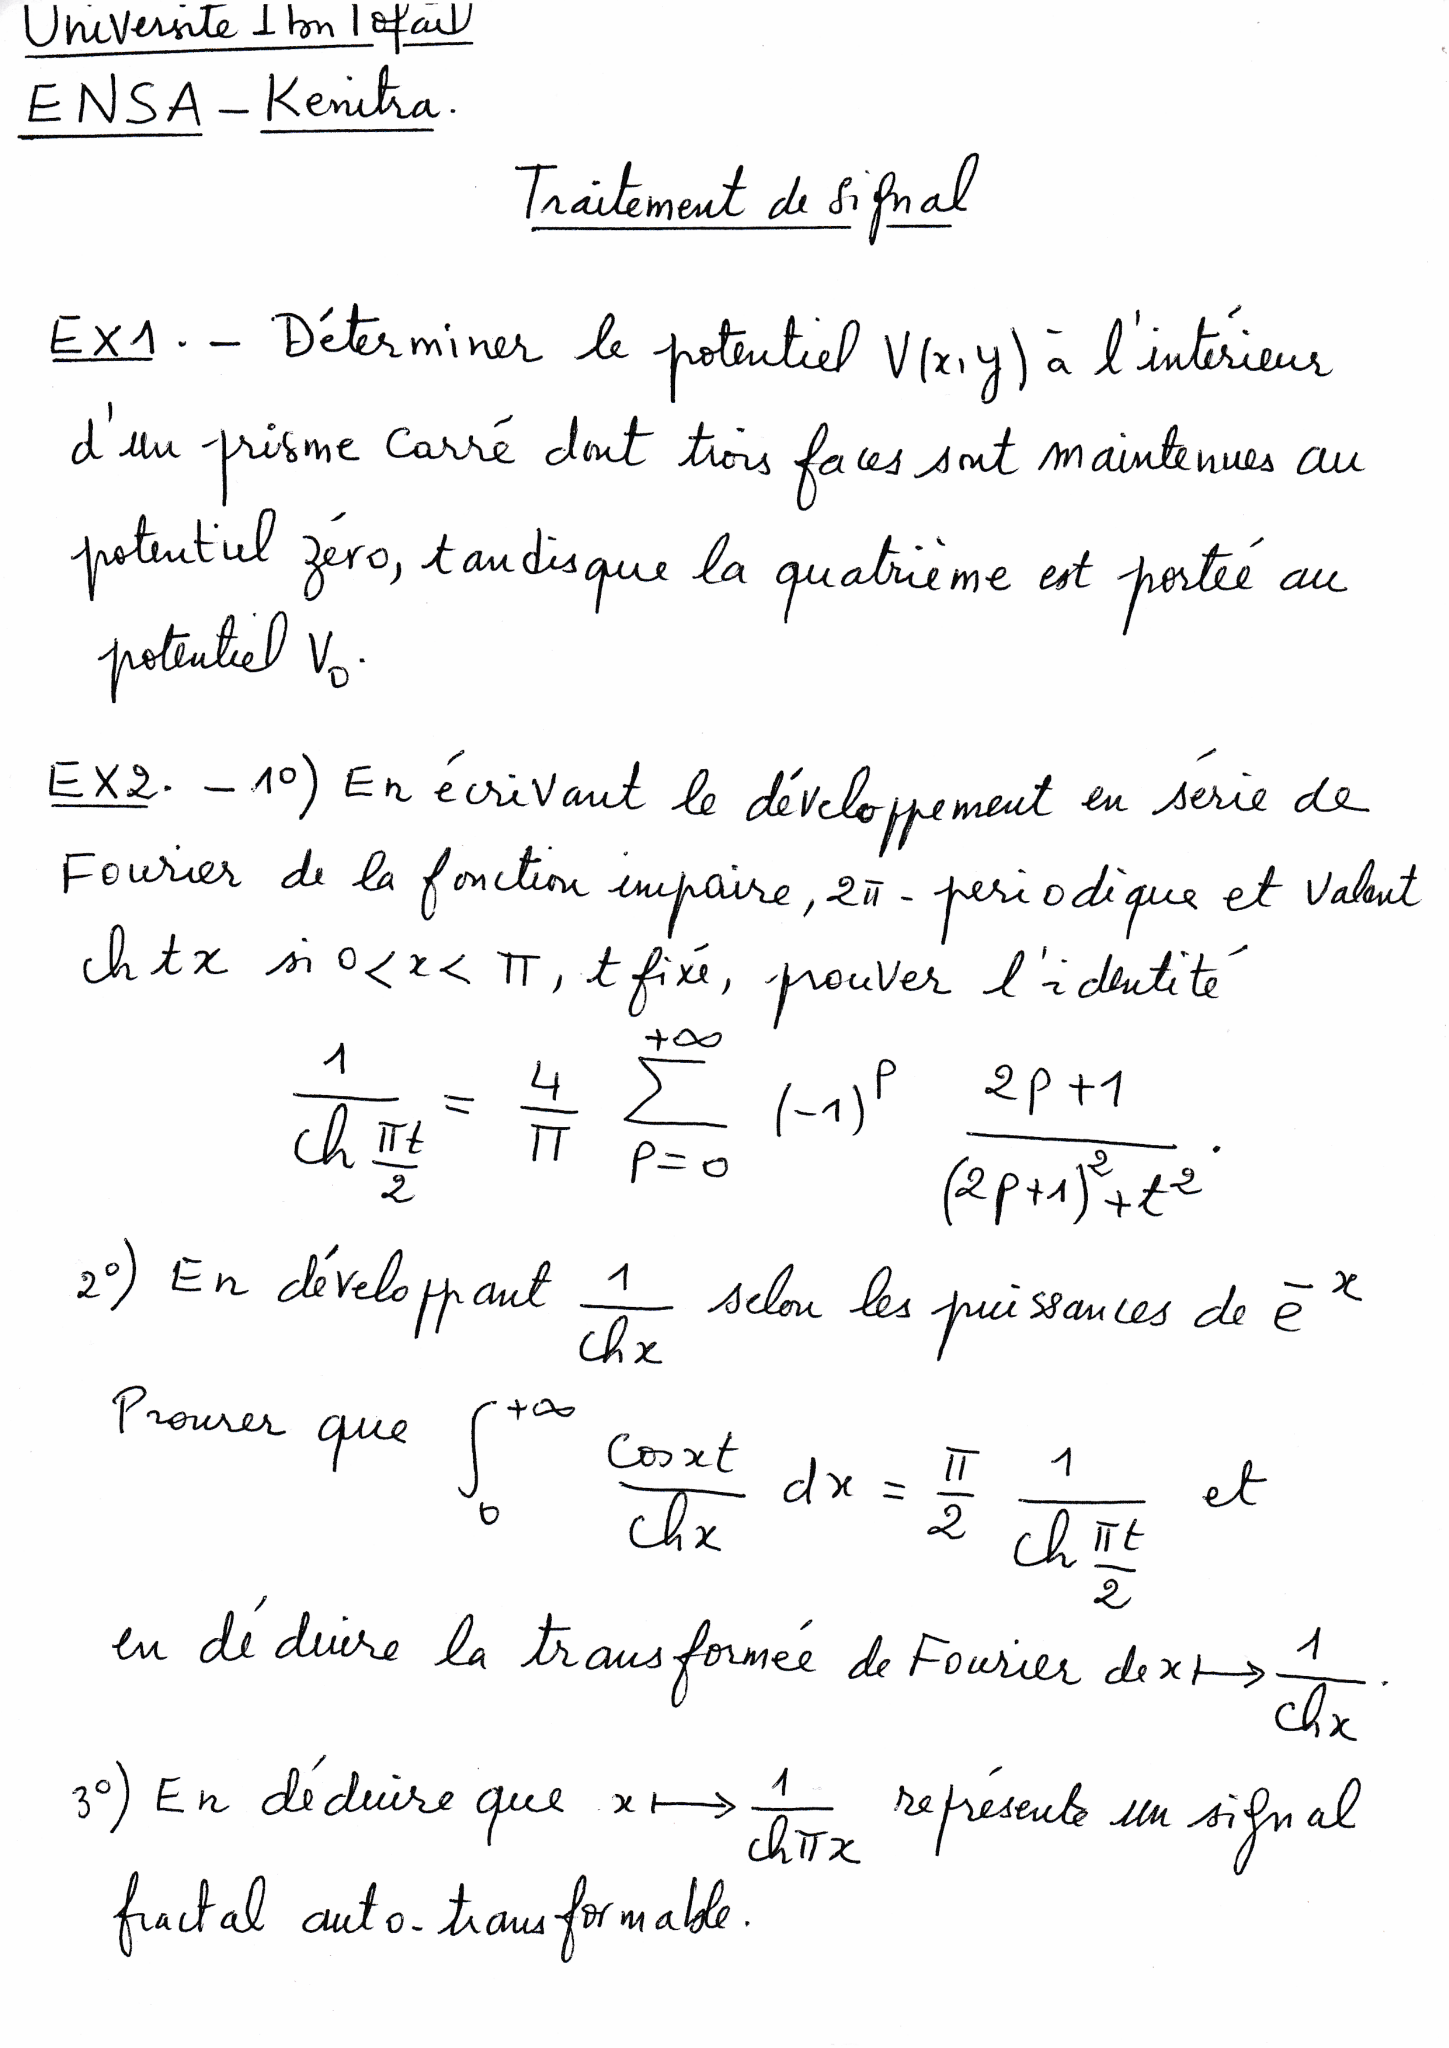 Université Ibn Tofail
ENSA - Kenitra.
Traitement de signal
EX1. - Déterminer le potentiel V(x,y) à l'intérieur
d'un prisme carré dont trois faces sont maintenues au
potentiel zéro, tandisque la quatrième est portée au
potentiel V₀.
EX2. - 1º) En écrivant le développement en série de
Fourier de la fonction impaire, 2π-periodique et valant
ch tx si 0<x<π, t fixé, prouver l'identité
1/(ch πt/2) = 4/π Σ_{p=0}^{+∞} (-1)^p (2p+1)/((2p+1)²+t²).
2º) En développant 1/(ch x) selon les puissances de e^{-x}
Prouver que ∫_0^{+∞} (cos xt)/(ch x) dx = π/2 1/(ch πt/2) et
en déduire la transformée de Fourier de x ↦ 1/(ch x).
3º) En déduire que x ↦ 1/(ch πx) représente un signal
fractal auto-transformable.